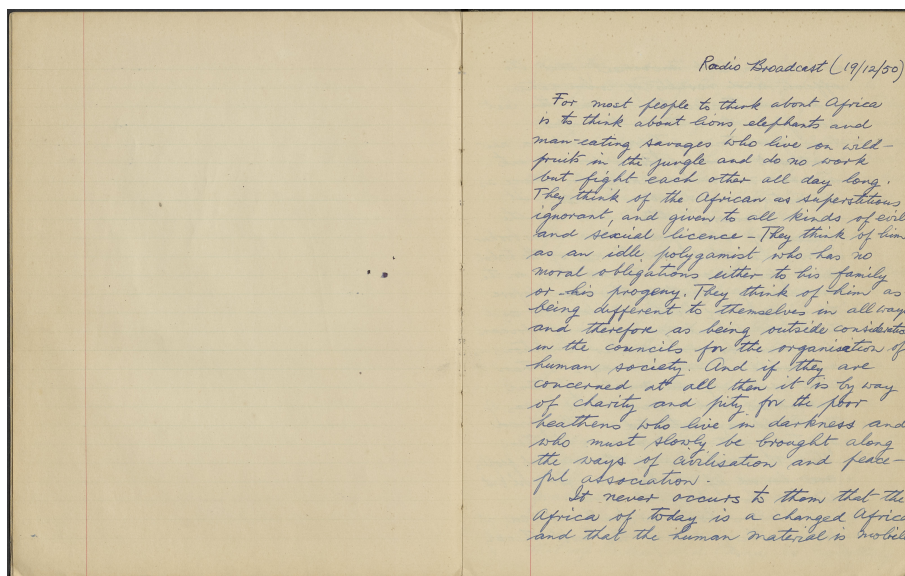 Radio Broadcast (19/12/50)
For most people to think about Africa
is to think about lions, elephants and
man-eating savages who live on wild-
fruits in the jungle and do no work
but fight each other all day long.
They think of the African as superstitious
ignorant, and given to all kinds of evil
and sexual licence - They think of him
as an idle, polygamist who has no
moral obligations either to his family
or his progeny. They think of him as
being different to themselves in all ways
and therefore as being outside consideratio
in the councils for the organisation of
human society. And if they are
concerned at all then it is by way
of charity and pity for the poor
heathens who live in darkness and
who must slowly be brought along
the ways of civilisation and peace-
ful association.
It never occurs to them that the
Africa of today is a changed Africa
and that the human material is mobile